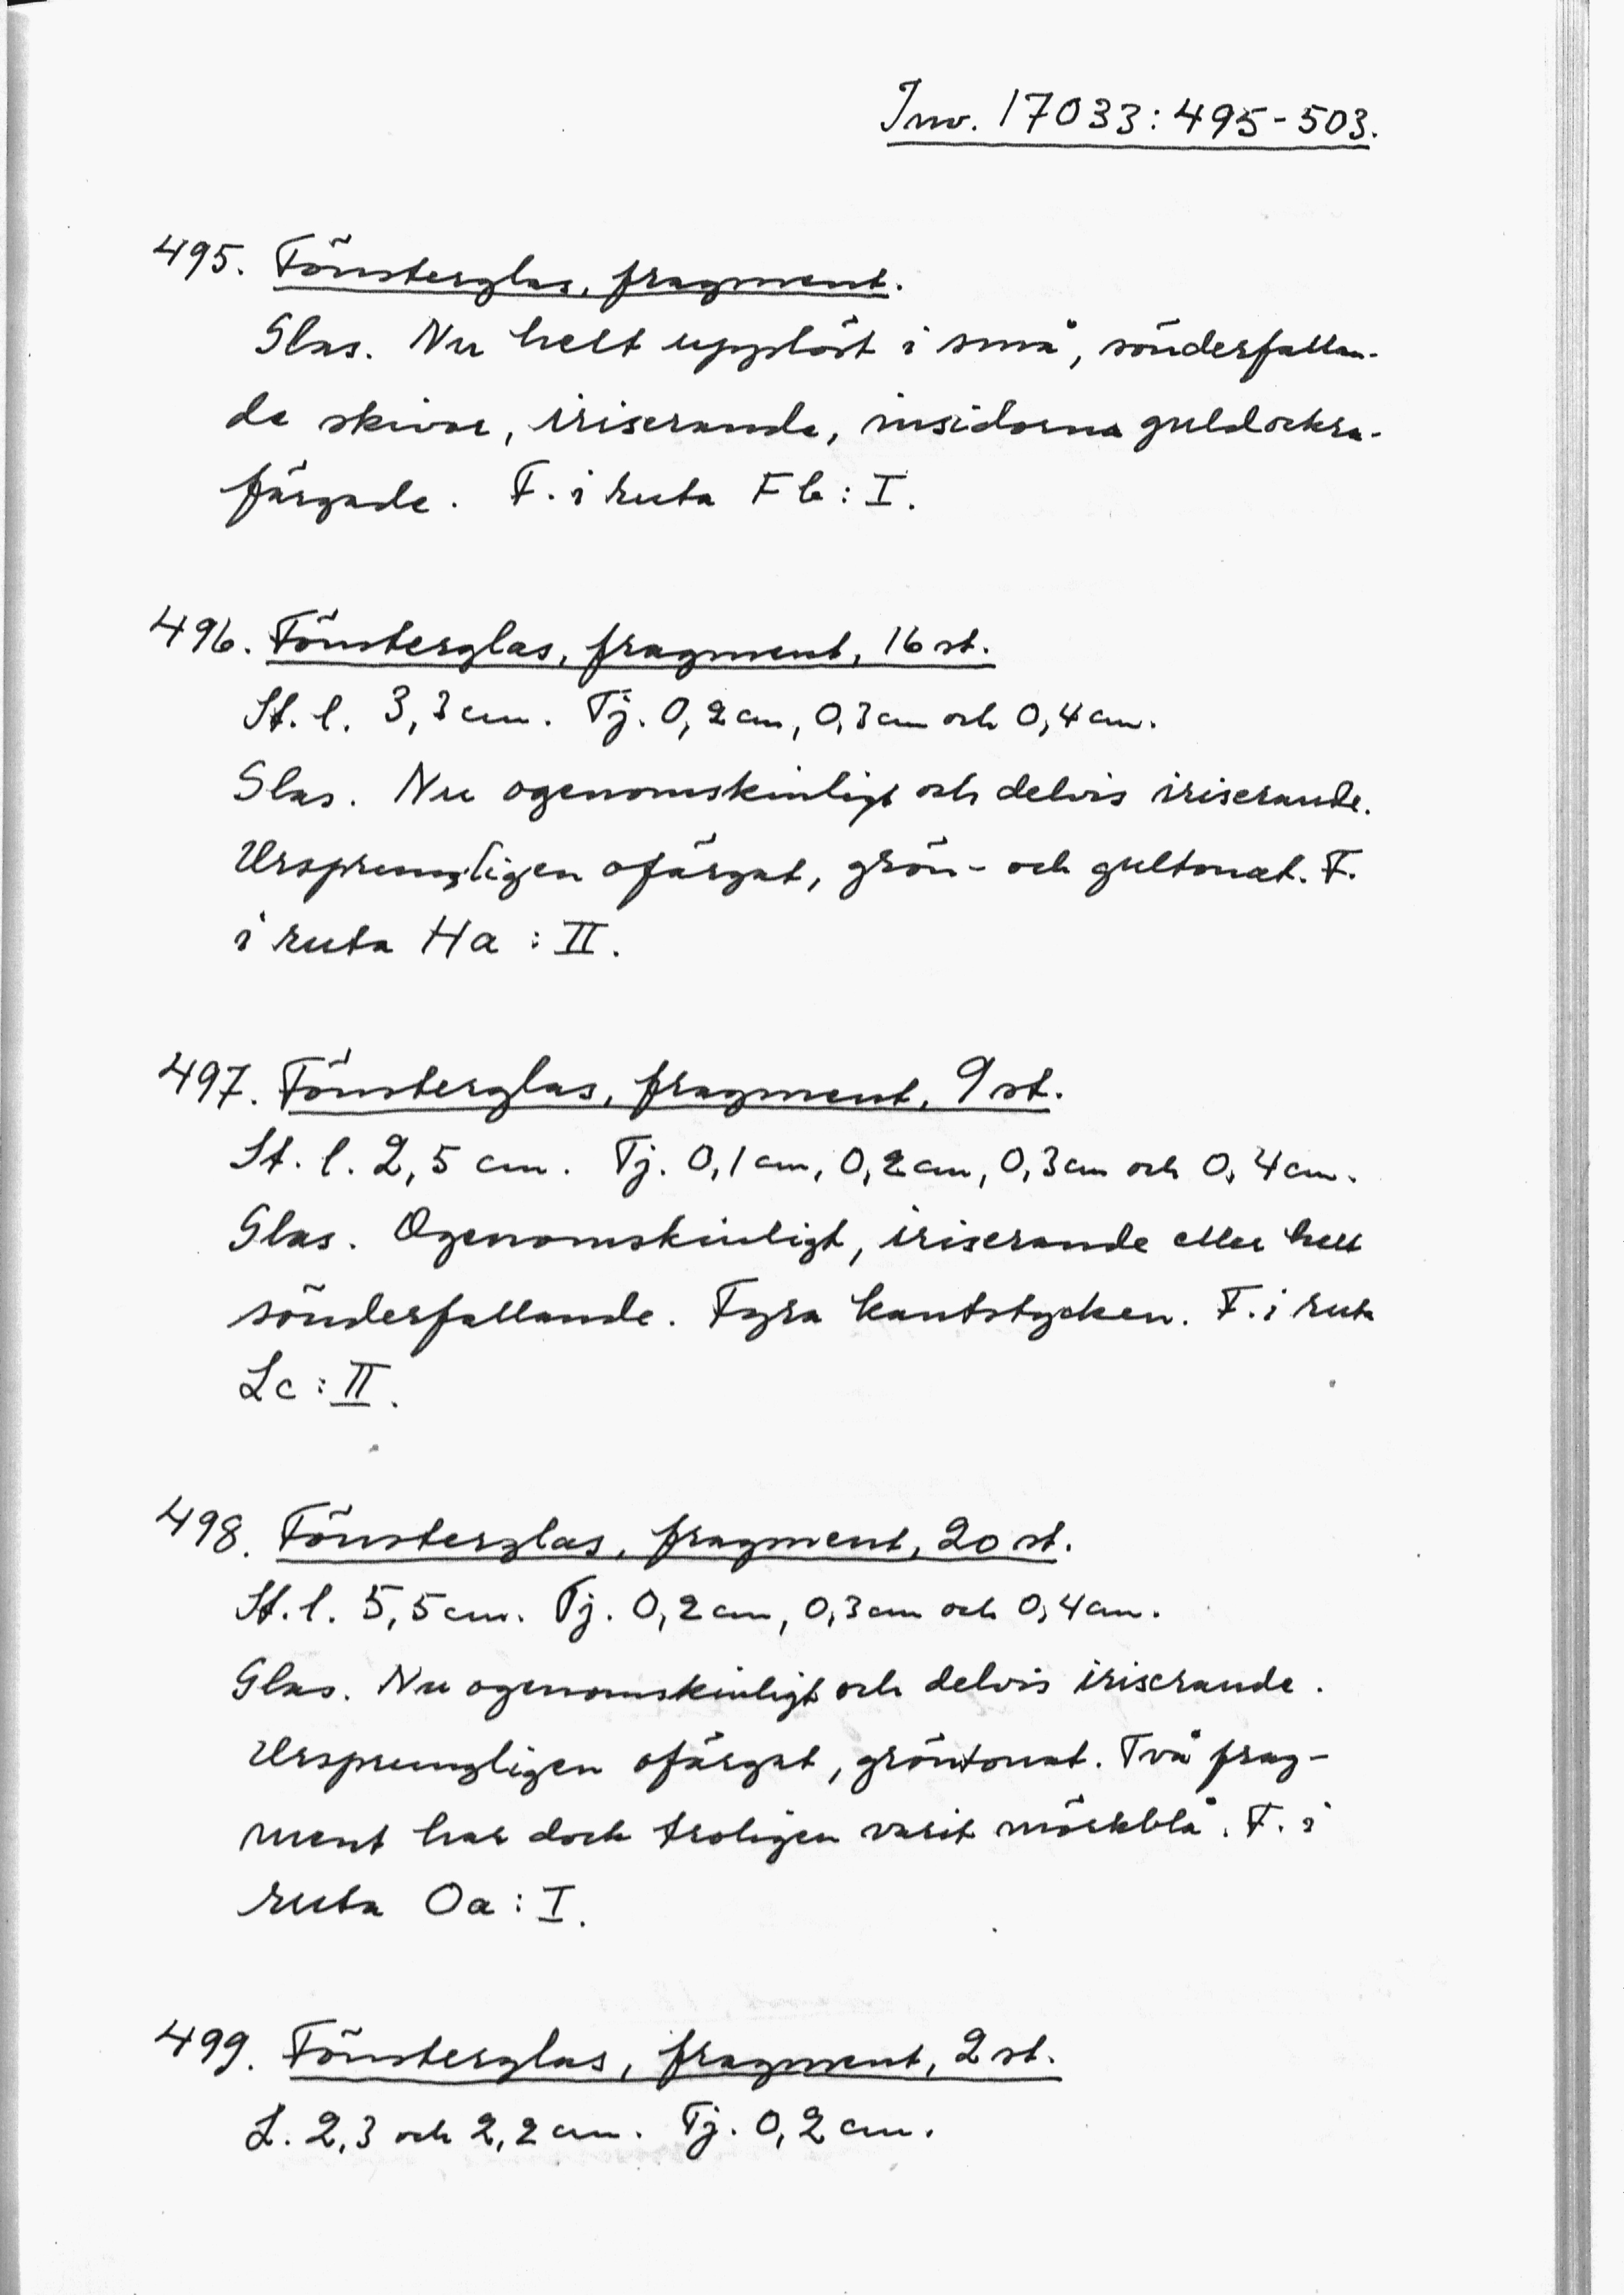 Inv. 17033:495-503.
495. Fönsterglas, fragment.
Glas. Nu helt upplöst i små, sönderfallan-
de skivor, iriserande, insidorna guldockra-
färgade. F. i ruta Fb: I.
496. Fönsterglas, fragment, 16 st.
St. l. 3,3 cm. Tj. 0,2 cm, 0,3 cm och 0,4 cm.
Glas. Nu ogenomskinligt och delvis iriserande.
Ursprungligen ofärgat, grön- och gultonat. F.
i ruta Ha: II.
497. Fönsterglas, fragment, 9 st.
St. l. 2,5 cm. Tj. 0,1 cm, 0,2 cm, 0,3 cm och 0,4 cm.
Glas. Ogenomskinligt, iriserande eller helt
sönderfallande. Fyra kantstycken. F. i ruta
Lc: II.
498. Fönsterglas, fragment, 20 st.
St. l. 5,5 cm. Tj. 0,2 cm, 0,3 cm och 0,4 cm.
Glas. Nu ogenomskinligt och delvis iriserande.
Ursprungligen ofärgat, gröntonat. Två frag-
ment har dock troligen varit mörkblå. F. i
ruta Oa: I.
499. Fönsterglas, fragment, 2 st.
L. 2,3 och 2,2 cm. Tj. 0,2 cm.